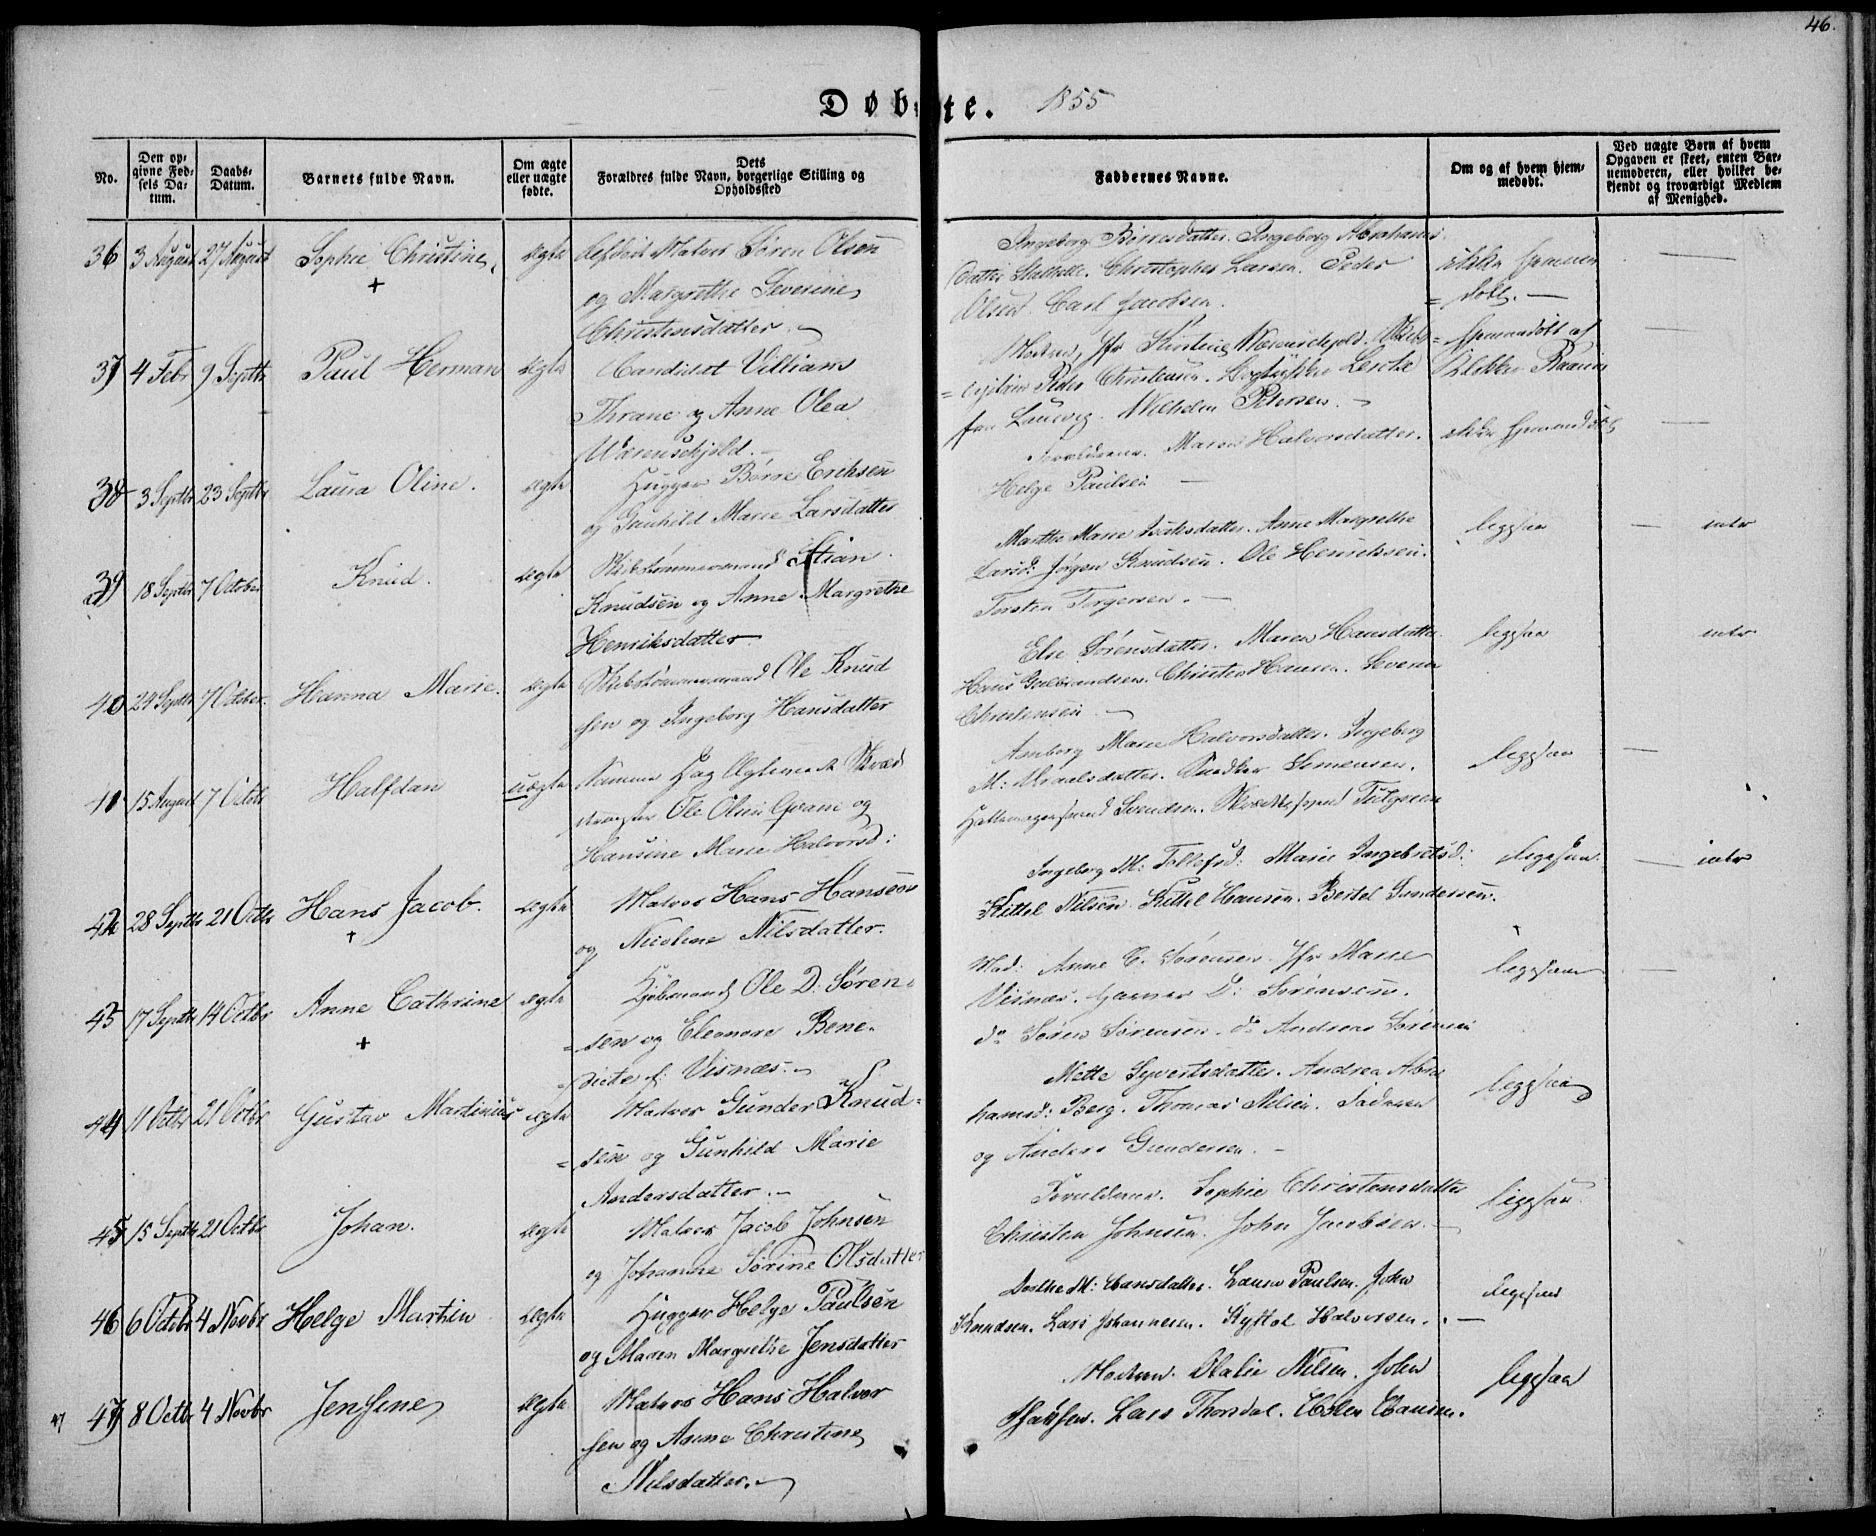 46.
Døbte. 1855
No.
Den opgivne Fødsels Datum.
Daabs-Datum.
Barnets fulde Navn.
Om ægte eller uægte fødte.
Dets Forældres fulde Navn, borgerlige Stilling og Opholdssted
Faddernes Navne.
Om og af hvem hjemmedøbt.
Ved uægte Børn af hvem Opgaven er skeet, enten Barnemoderen, eller hvilket bekjendt og troværdigt Medlem af Menighed.
36 3 August 27 August Sophie Christine, ægte Matros Søren Olsen
+
og Margrethe Severine
Christensdatter.
Ingeborg Børresdatter. Ingeborg Abrahams
datter. Christopher Larsen. Peder
Olsen. Carl Jacobsen.
ikke hjemme
= døbt. —
37 4 Febr 9 Septbr Paul Herman ægte Candidat Villiam
Thrane og Anne Olea
Wærenskjold.
Moderen, Jfr Kirstine Værenskjold.
Peder Christensen. Lerche
fra Laurvig. Wilhelm Petersen. —
hjemmedøbt af
Klokker
38 3 Septbr 23 Septbr Laura Oline. ægte Hugger Børre Eriksen
og Gunhild Marie Larsdatter
Forældrene. Maren Halvorsdatter.
Helge Paulsen —
ikke hjemmedøbt
39 18 Septbr 7 October Knud. ægte Skibstømmermand Stian
Knudsen og Anne Margrethe
Henriksdatter
Marthe Marie Isaksdatter. Anne Margrethe
Larsd: Jørgen Knudsen. Ole Henriksen.
Torsten Torgersen. —
ligesaa
40 24 Septbr 7 October. Hanna Marie. ægte Skibstømmermand Ole Knud
sen og Ingeborg Hansdatter
Else Sørensdatter. Maren Hansdatter.
Hans Gulbrandsen. Christen Hansen. Severin
Christensen.
ligesaa
41 15 August 7 Octbr Halfdan uægte
Ole Olsen og
Hansine Marie Halvorsd:
Amborg Marie Halvorsdatter. Ingeborg
M: Snedker Simensen.
Svendsen.
ligesaa
42 28 Septbr 21 Octbr Hans Jacob. ægte Matros Hans Hansen
+
og Nicoline Nilsdatter.
Ingeborg M: Tollefsd: Maren Ingebretsd:
Kittel Nilsen. Kittel Hansen. Bertel Gundersen.
ligesaa.
43 17 Septbr 14 Octbr Anne Cathrine ægte Kjøbmand Ole D: Søren=
+
= sen og Eleonore Bene=
= dicte f: Visnæs.
Mad: Anne C. Sørensen. Jfr Marie
Visnæs. D: Sørensen.
do Søren Sørensen. do Andreas Sørensen
ligesaa
44 11 Octbr 21 Octbr Gustav Martinius ægte Matros Gunder Knud=
= sen og Gunhild Marie
Andersdatter.
Mette Syvertsdatter. Andrea Abra
hamsd: Berg. Thomas Nilsen.
og Anders Gundersen. —
ligesaa
45 15 Septbr 21 Octbr Johan. ægte Matros Jacob Johnsen
og Johanne Sørine Olsdatter
Forældrene. Sophie Christensdatter
Christen Johnsen. John Jacobsen.
ligesaa
46 6 Octbr 4 Novbr Helge Martin ægte Hugger Helge Paulsen
og Maren Margrethe Jensdatter
Dorthe M: Hansdatter. Laura Paulsen. John
Knudsen. Lars Johannesen. Halvorsen. —
ligesaa
47 47 8 Octbr 4 Novbr Jensine ægte Matros Hans Halvor
sen og Anne Christine
Nilsdatter.
Moderen. Olalie Nilsen. John
Lars Thorsdal. Hansen.
ligesaa